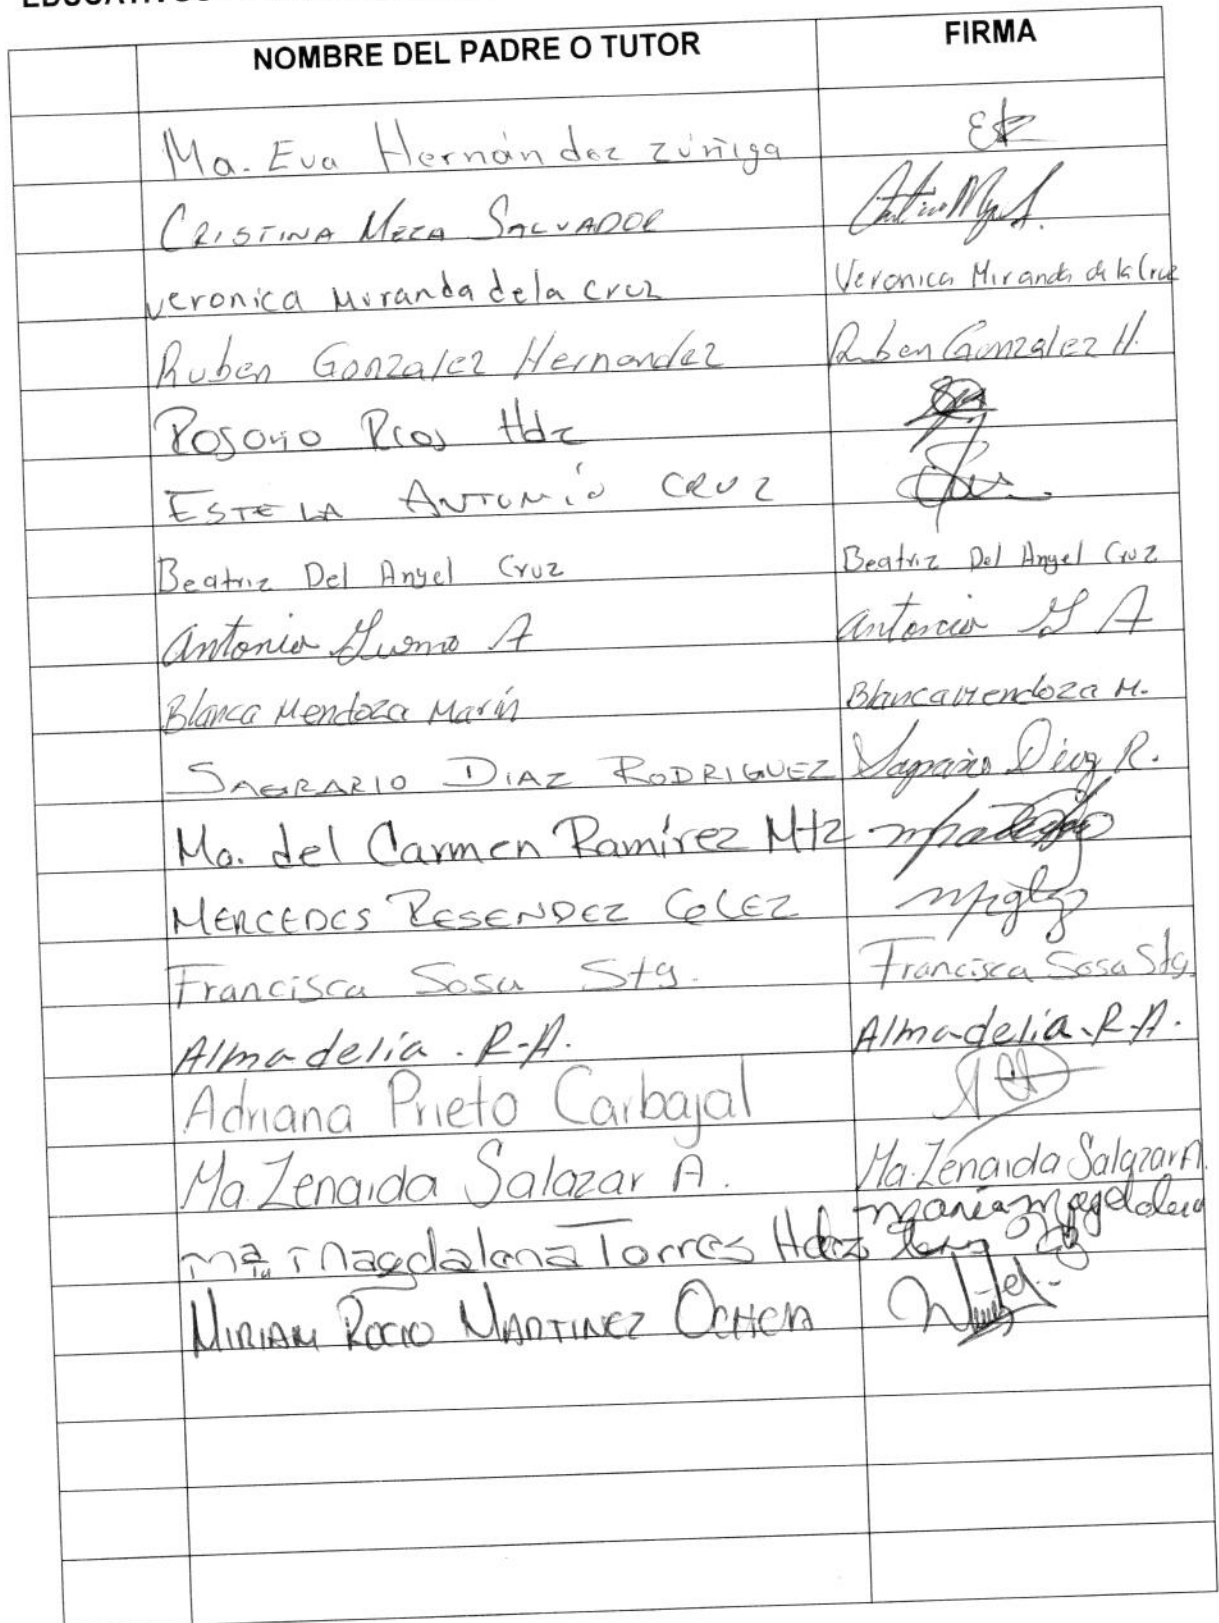 NOMBRE DEL PADRE O TUTOR FIRMA
Ma. Eva Hernández Zúñiga
CRISTINA MEZA SALVADOR
veronica Miranda dela cruz Veronica Miranda de la Cruz
Ruben Gonzalez Hernandez Ruben Gonzalez H.
Rosario Rios Hdz
ESTELA ANTONIO CRUZ
Beatriz Del Angel Cruz Beatriz Del Angel Cruz
Antonia A Antonia A
Blanca Mendoza Marín Blanca Mendoza M.
SAGRARIO DIAZ RODRIGUEZ Sagrario Diaz R.
Ma. del Carmen Ramírez Mtz
MERCEDES RESENDEZ
Francisca Sosa Stg. Francisca Sosa Stg.
Almadelia. R-A. Almadelia. R-A.
Adriana Prieto Carbajal
Ma. Zenaida Salazar A. Ma. Zenaida Salazar A.
Ma. Magdalena Torres Hdez maria magdalena
MIRIAM ROCIO MARTINEZ OCHOA